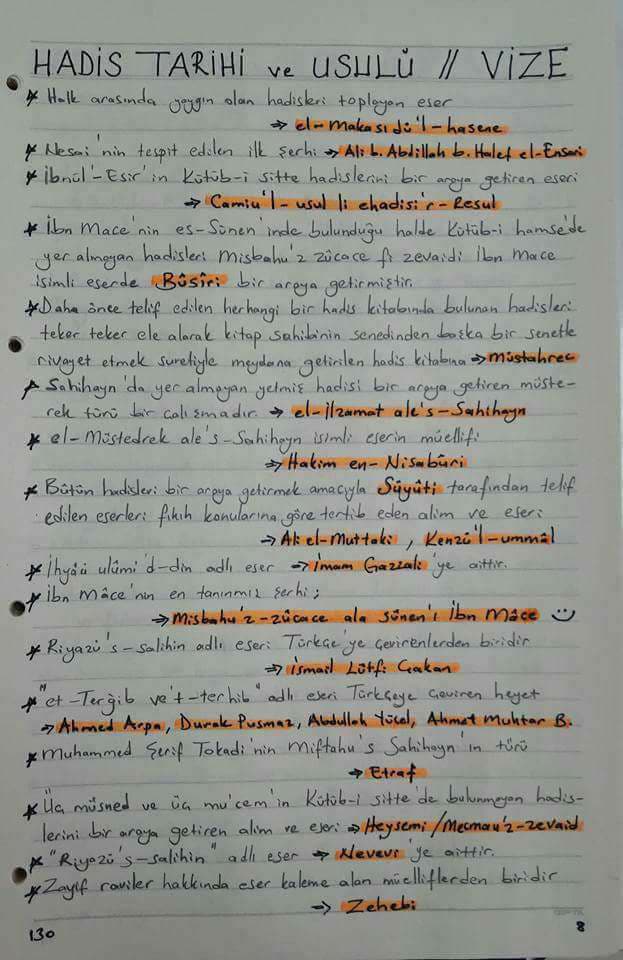 HADİS TARİHİ ve USULÜ // VİZE
* Halk arasında yaygın olan hadisleri toplayan eser
→ el-makasıdü'l-hasene
* Nesai'nin tespit edilen ilk şerhi → Ali b. Abdillah b. Halef el-Ensari
* İbnül'-Esir'in Kütüb-i sitte hadislerini bir araya getiren eseri
→ Camiu'l-usul li ehadisi'r-Resul
* İbn Mace'nin es-Sünen'inde bulunduğu halde Kütüb-i hamse'de
yer almayan hadisleri Misbahu'z zücace fi zevaidi İbn Mace
isimli eserde Bûsîri bir araya getirmiştir.
* Daha önce telif edilen herhangi bir hadis kitabında bulunan hadisleri
teker teker ele alarak kitap sahibinin senedinden başka bir senetle
rivayet etmek suretiyle meydana getirilen hadis kitabına → müstahrec
* Sahihayn'da yer almayan yetmiş hadisi bir araya getiren müste-
rek türü bir çalışmadır. → el-ilzamat ale's-Sahihayn
* el-Müstedrek ale's-Sahihayn isimli eserin müellifi
→ Hakim en-Nisabûri
* Bütün hadisleri bir araya getirmek amacıyla Süyûti tarafından telif
edilen eserleri fıkıh konularına göre tertib eden alim ve eseri
→ Ali el-Muttaki, Kenzü'l-ummâl
* İhyâü ulûmi'd-din adlı eser → İmam Gazzali'ye aittir.
* İbn Mâce'nin en tanınmış şerhi;
→ Misbahu'z-zücace ala sünen'i İbn Mâce ☺
* Riyazü's-salihin adlı eseri Türkçe'ye çevirenlerden biridir
→ İsmail Lütfi Çakan
* "et-Terğib ve't-terhib" adlı eseri Türkçeye çeviren heyet
→ Ahmed Arpa, Durak Pusmaz, Abdullah Yücel, Ahmet Muhtar B.
* Muhammed Şerif Tokadi'nin Miftahu's Sahihayn'ın türü
→ Etraf
* Üç müsned ve üç mu'cem'in Kütüb-i sitte'de bulunmeyan hadis-
lerini bir araya getiren alim ve eseri → Heysemi/Mecmau'z-zevaid
* "Riyazü's-salihin" adlı eser → Nevevi'ye aittir.
* Zayıf raviler hakkında eser kaleme alan müelliflerden biridir
→ Zehebi
130
8